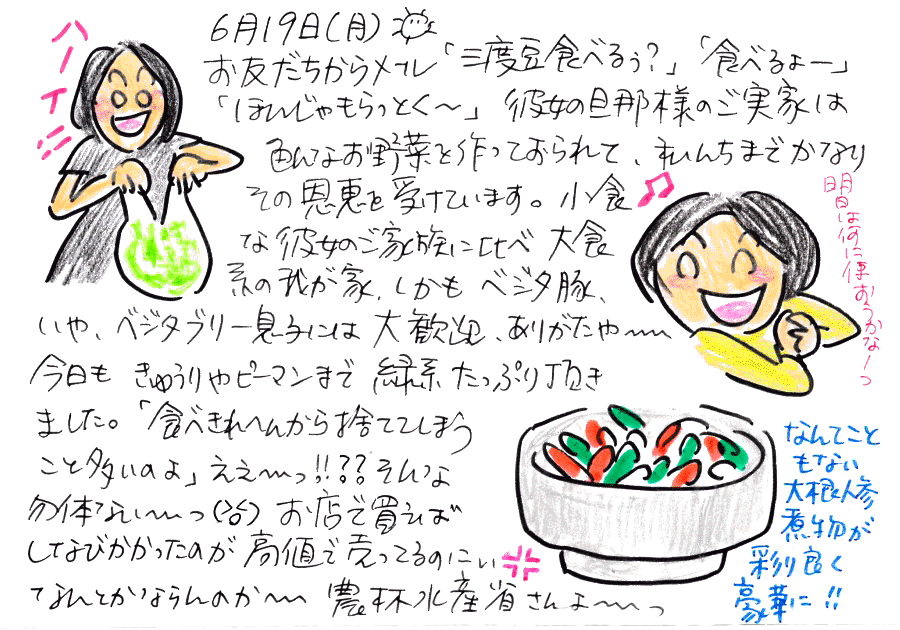 6月19日(月)
お友だちからメール「三度豆食べるぅ?」「食べるょー」
「ほんじゃもらっとく〜」彼女の旦那様のご実家は
色んなお野菜を作っておられて、わんちまでかなり
その恩恵を受けています。小食
な彼女のご家族に比べ 大食
系の我が家、しかも ベジタ豚、
いや、ベジタブリー息子には 大歓迎、ありがたや〜〜
今日も きゅうりやピーマンまで 緑系たっぷり頂き
ました。「食べきれへんから捨ててしまう
こと多いのよ」ええ〜っ!!??そんな
勿体ない〜〜っ(泣) お店で買えば
しなびかかったのが 高値で売ってるのにぃ
なんとかならんのか〜〜 農林水産省さんよ〜〜っ
ハーイ!!
明日は何に使おうかな〜っ
なんてこと
もない
大根人参
煮物が
彩り良く
豪華に!!